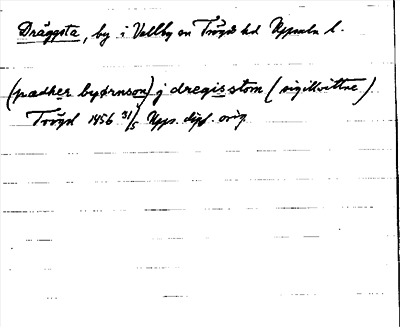 Dräggsta, by i Vallby sn Trögds hd Uppsala l.
(pædher byørnson) j dregisstom (sigillvittne)
Trögd 1456 31/5 Upps. dipl. orig